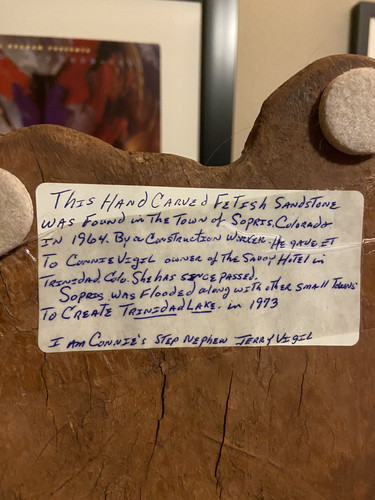 This Hand Carved Fetish Sandstone
was Found in The Town of Sopris, Colorado
in 1964. By a Construction Worker. He gave it
To Connie Vigil owner of the Savoy Hotel in
Trinidad Colo. She has since passed.
Sopris was Flooded along with other small Towns
To Create Trinidad Lake. in 1973
I am Connie's Step Nephew Jerry Vigil